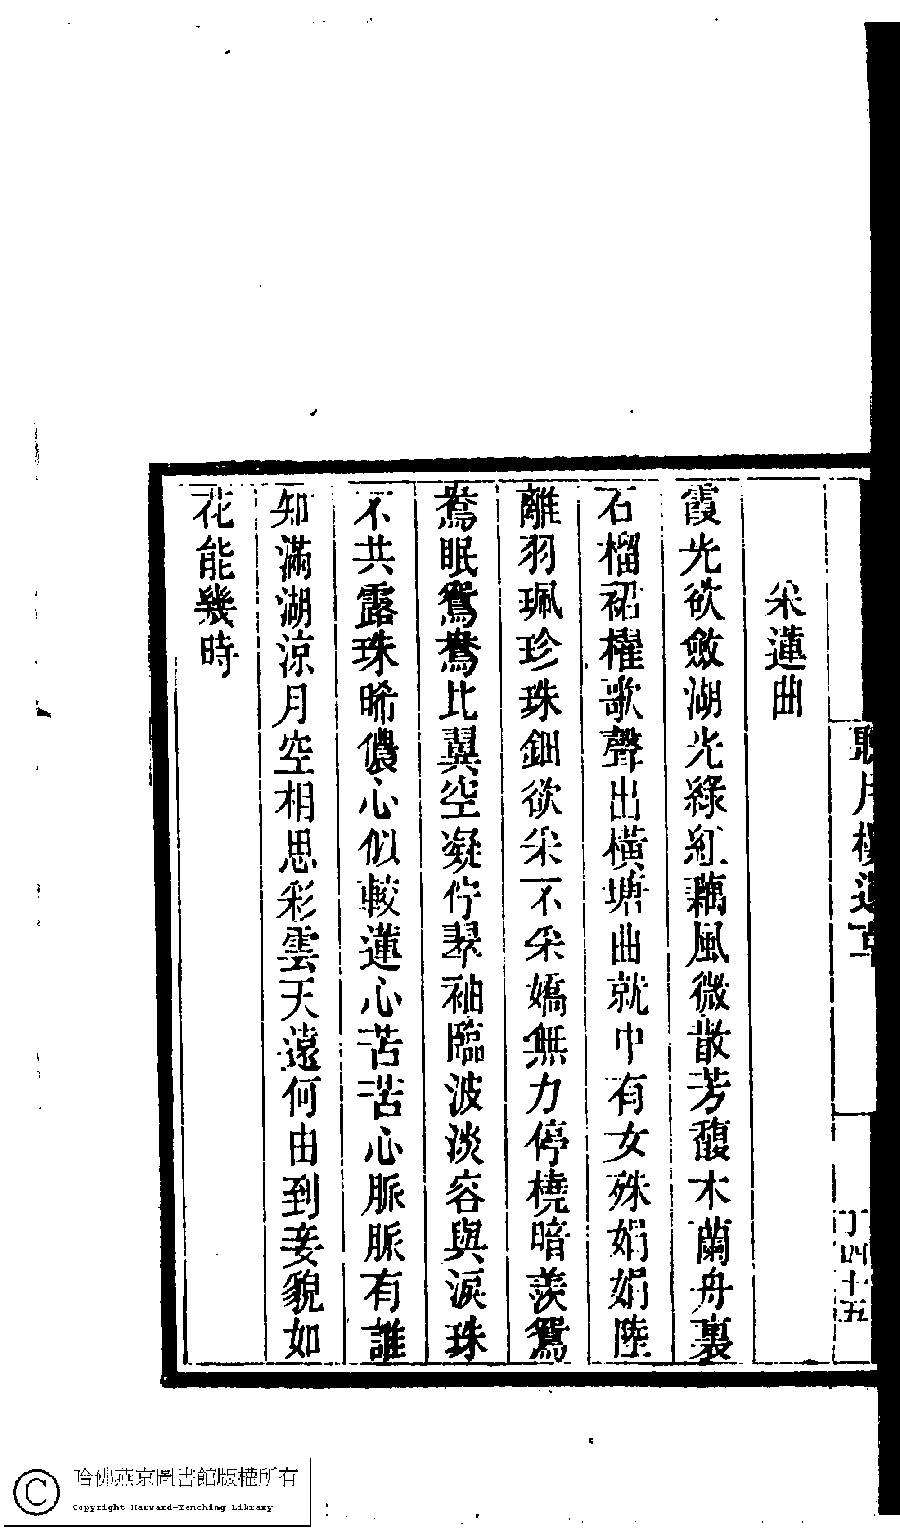 采蓮曲
霞光欲斂湖光綠紅藕風微散芳馥木蘭舟裏
石榴裙櫂歌聲出橫塘曲就中有女殊娟娟陸
離羽珮珍珠鈿欲采不采嬌無力停橈暗羨鴛
鴦眠鴛鴦比翼空凝佇翠袖臨波淡容與淚珠
不共露珠晞儂心似較蓮心苦苦心脈脈有誰
知滿湖涼月空相思彩雲天遠何由到妾貌如
花能幾時
月樓遺草
四十五
哈佛燕京圖書館版權所有
Copyright Harvard-Yenching Library